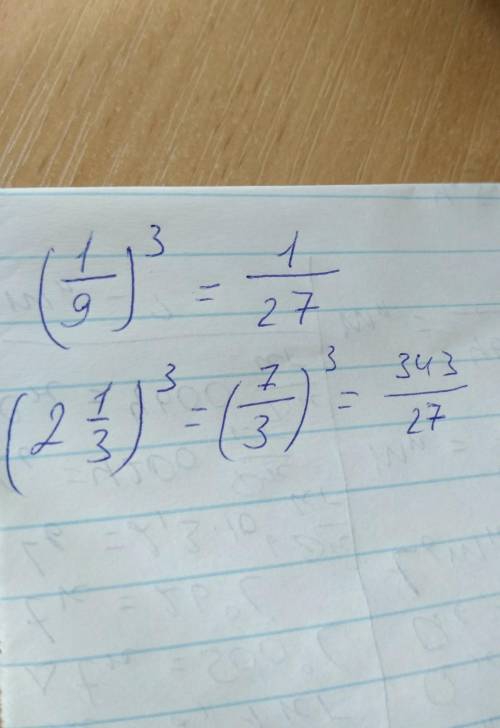 (1/9)³ = 1/27
(2 1/3)³ = (7/3)³ = 343/27